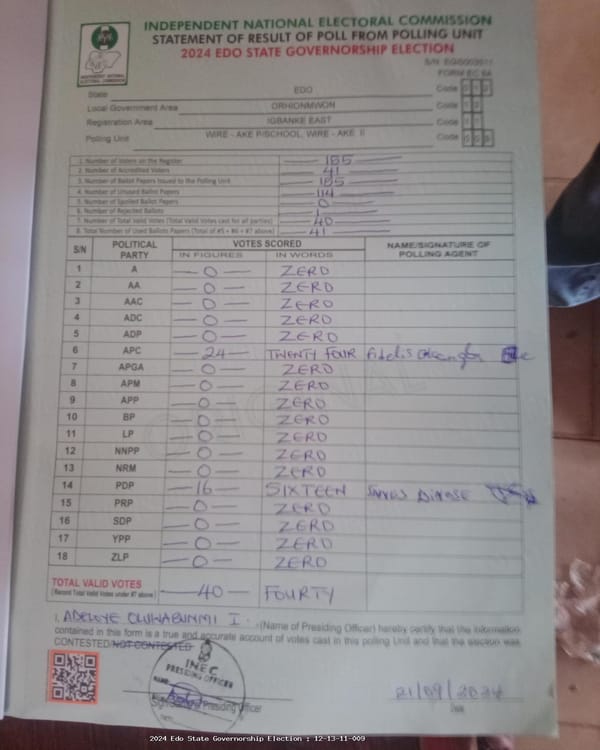 INDEPENDENT NATIONAL ELECTORAL COMMISSION
STATEMENT OF RESULT OF POLL FROM POLLING UNIT
2024 EDO STATE GOVERNORSHIP ELECTION
INDEPENDENT NATIONAL ELECTORAL COMMISSION
FORM EC 8A
State EDO Code 1 2
Local Government Area ORHIONMWON Code 1 3
Registration Area IGBANKE EAST Code 1 1
Polling Unit WIRE - AKE P/SCHOOL, WIRE - AKE II Code 0 0 9
1. Number of Voters on the Register 185
2. Number of Accredited Voters 41
3. Number of Ballot Papers Issued to the Polling Unit 185
4. Number of Unused Ballot Papers 144
5. Number of Spoiled Ballot Papers 0
6. Number of Rejected Ballots 1
7. Number of Total Valid Votes (Total Valid Votes cast for all parties) 40
8. Total Number of Used Ballots Papers (Total of #5 + #6 + #7 above) 41
S/N POLITICAL PARTY VOTES SCORED NAME/SIGNATURE OF POLLING AGENT
IN FIGURES IN WORDS
1 A 0 ZERO
2 AA 0 ZERO
3 AAC 0 ZERO
4 ADC 0 ZERO
5 ADP 0 ZERO
6 APC 24 TWENTY FOUR Fidelis
7 APGA 0 ZERO
8 APM 0 ZERO
9 APP 0 ZERO
10 BP 0 ZERO
11 LP 0 ZERO
12 NNPP 0 ZERO
13 NRM 0 ZERO
14 PDP 16 SIXTEEN
15 PRP 0 ZERO
16 SDP 0 ZERO
17 YPP 0 ZERO
18 ZLP 0 ZERO
TOTAL VALID VOTES 40 FOURTY
(Record Total Valid Votes under #7 above)
I, ADELOYE OLUWABUNMI I. (Name of Presiding Officer) hereby certify that the information
contained in this form is a true and accurate account of votes cast in this polling Unit and that the election was
CONTESTED/NOT CONTESTED
INEC
PRESIDING OFFICER
NAME:
Officer
21/09/2024
Date
2024 Edo State Governorship Election : 12-13-11-009